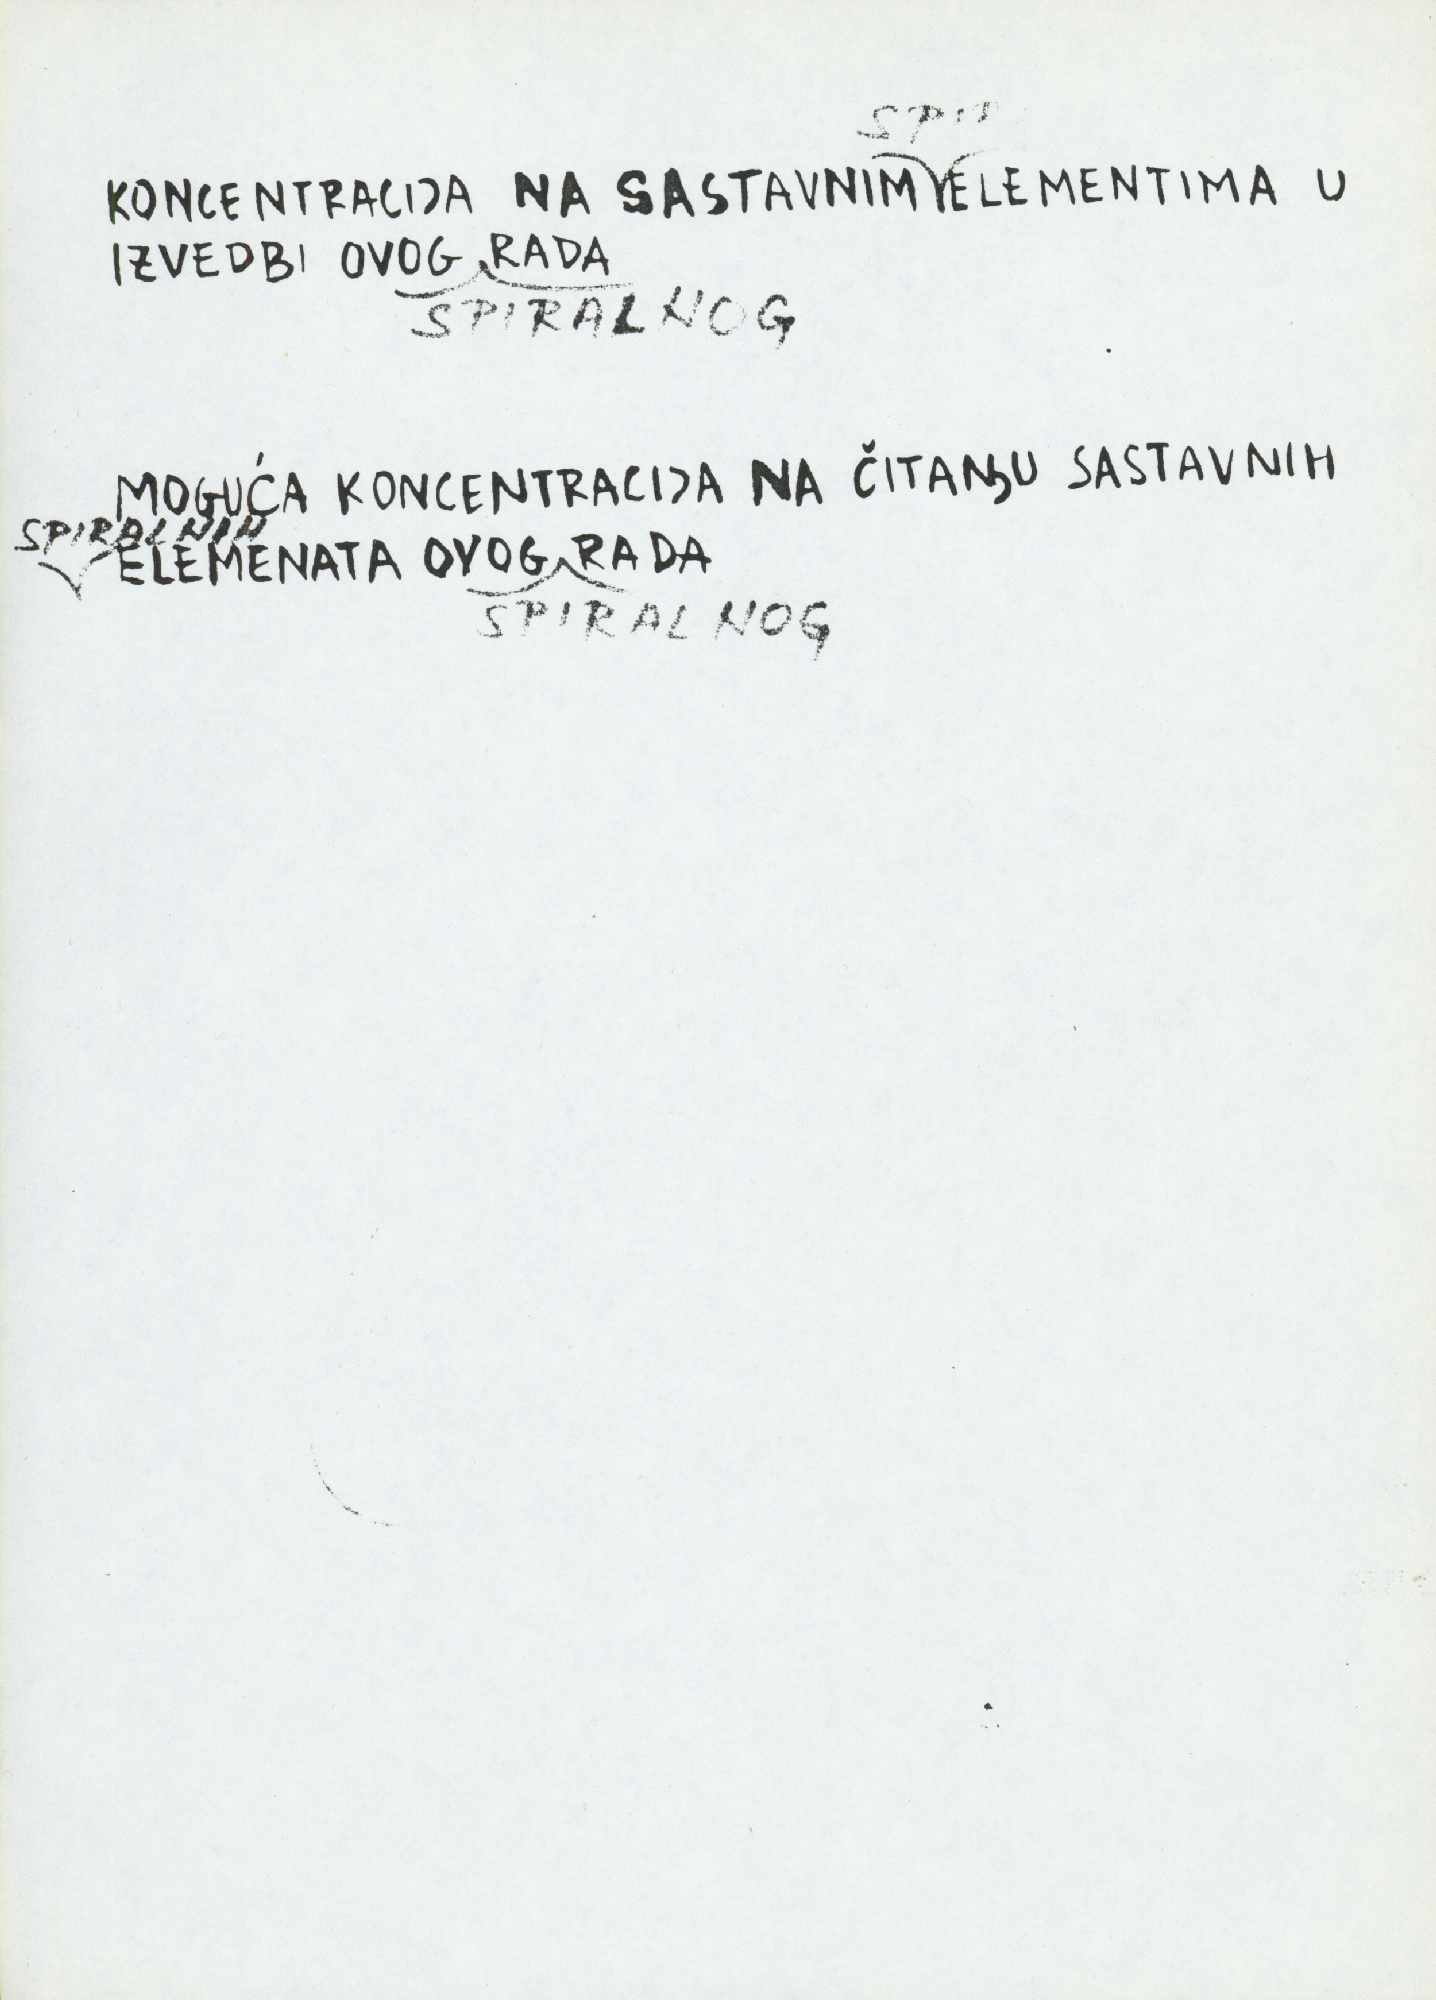 SPIR
KONCENTRACIJA NA SASTAVNIM ELEMENTIMA U
IZVEDBI OVOG RADA
SPIRALNOG
MOGUĆA KONCENTRACIJA NA ČITANJU SASTAVNIH
SPIRALNIH
ELEMENATA OVOG RADA
SPIRALNOG